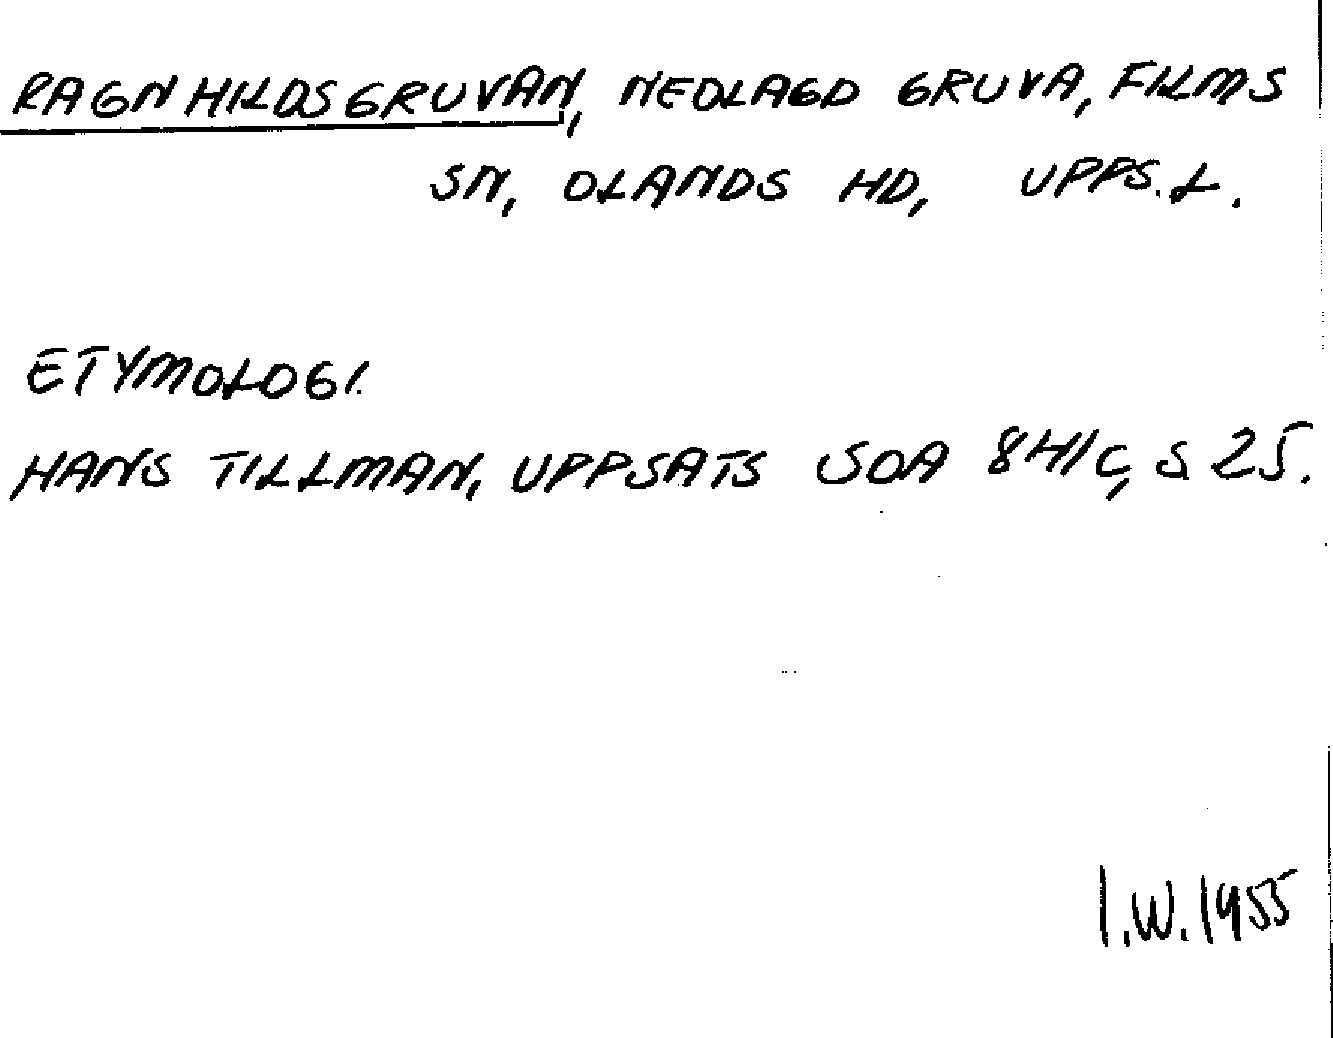 RAGNHILDSGRUVAN, NEDLAGD GRUVA, FILMS
SN, OLANDS HD, UPPS.L.
ETYMOLOGI.
HANS TILLMAN, UPPSATS SOA 84/C, S 25.
I.W. 1955